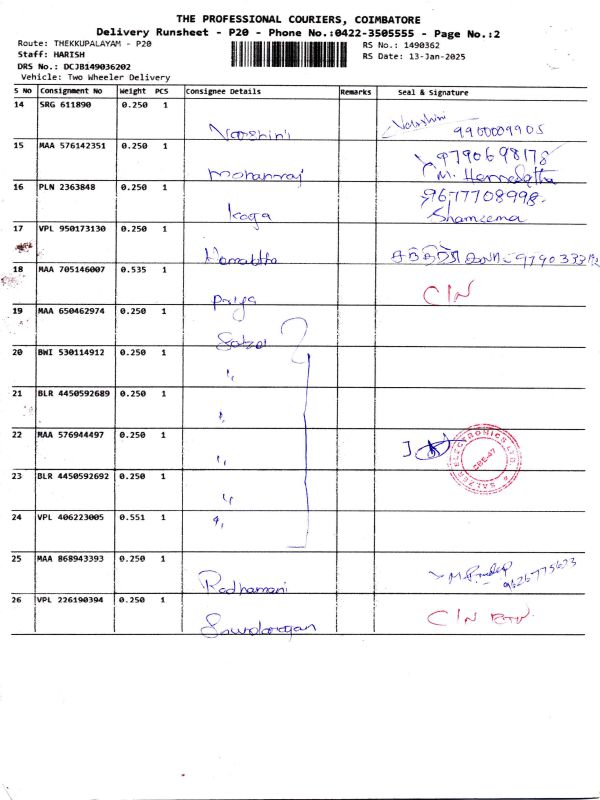 THE PROFESSIONAL COURIERS, COIMBATORE
Delivery Runsheet - P20 - Phone No.:0422-3505555 - Page No.:2
Route: THEKKUPALAYAM - P20
RS No.: 1490362
Staff: HARISH
RS Date: 13-Jan-2025
DRS No.: DCJB149036202
Vehicle: Two Wheeler Delivery
S No Consignment No Weight PCS Consignee Details Remarks Seal & Signature
14 SRG 611890 0.250 1
Varshini Varshini 9900009905
15 MAA 576142351 0.250 1
Mohanraj 9790698178
16 PLN 2363848 0.250 1
9677708998
Shameema
17 VPL 950173130 0.250 1
18 MAA 705146007 0.535 1
Priya C/N
19 MAA 650462974 0.250 1
20 BWI 530114912 0.250 1
"
21 BLR 4450592689 0.250 1
"
22 MAA 576944497 0.250 1
" SALZER ELECTRONICS LTD CBE-47
23 BLR 4450592692 0.250 1
"
24 VPL 406223005 0.551 1
"
25 MAA 868943393 0.250 1
Radhamani M. Pradeep
9626775633
26 VPL 226190394 0.250 1
C/N